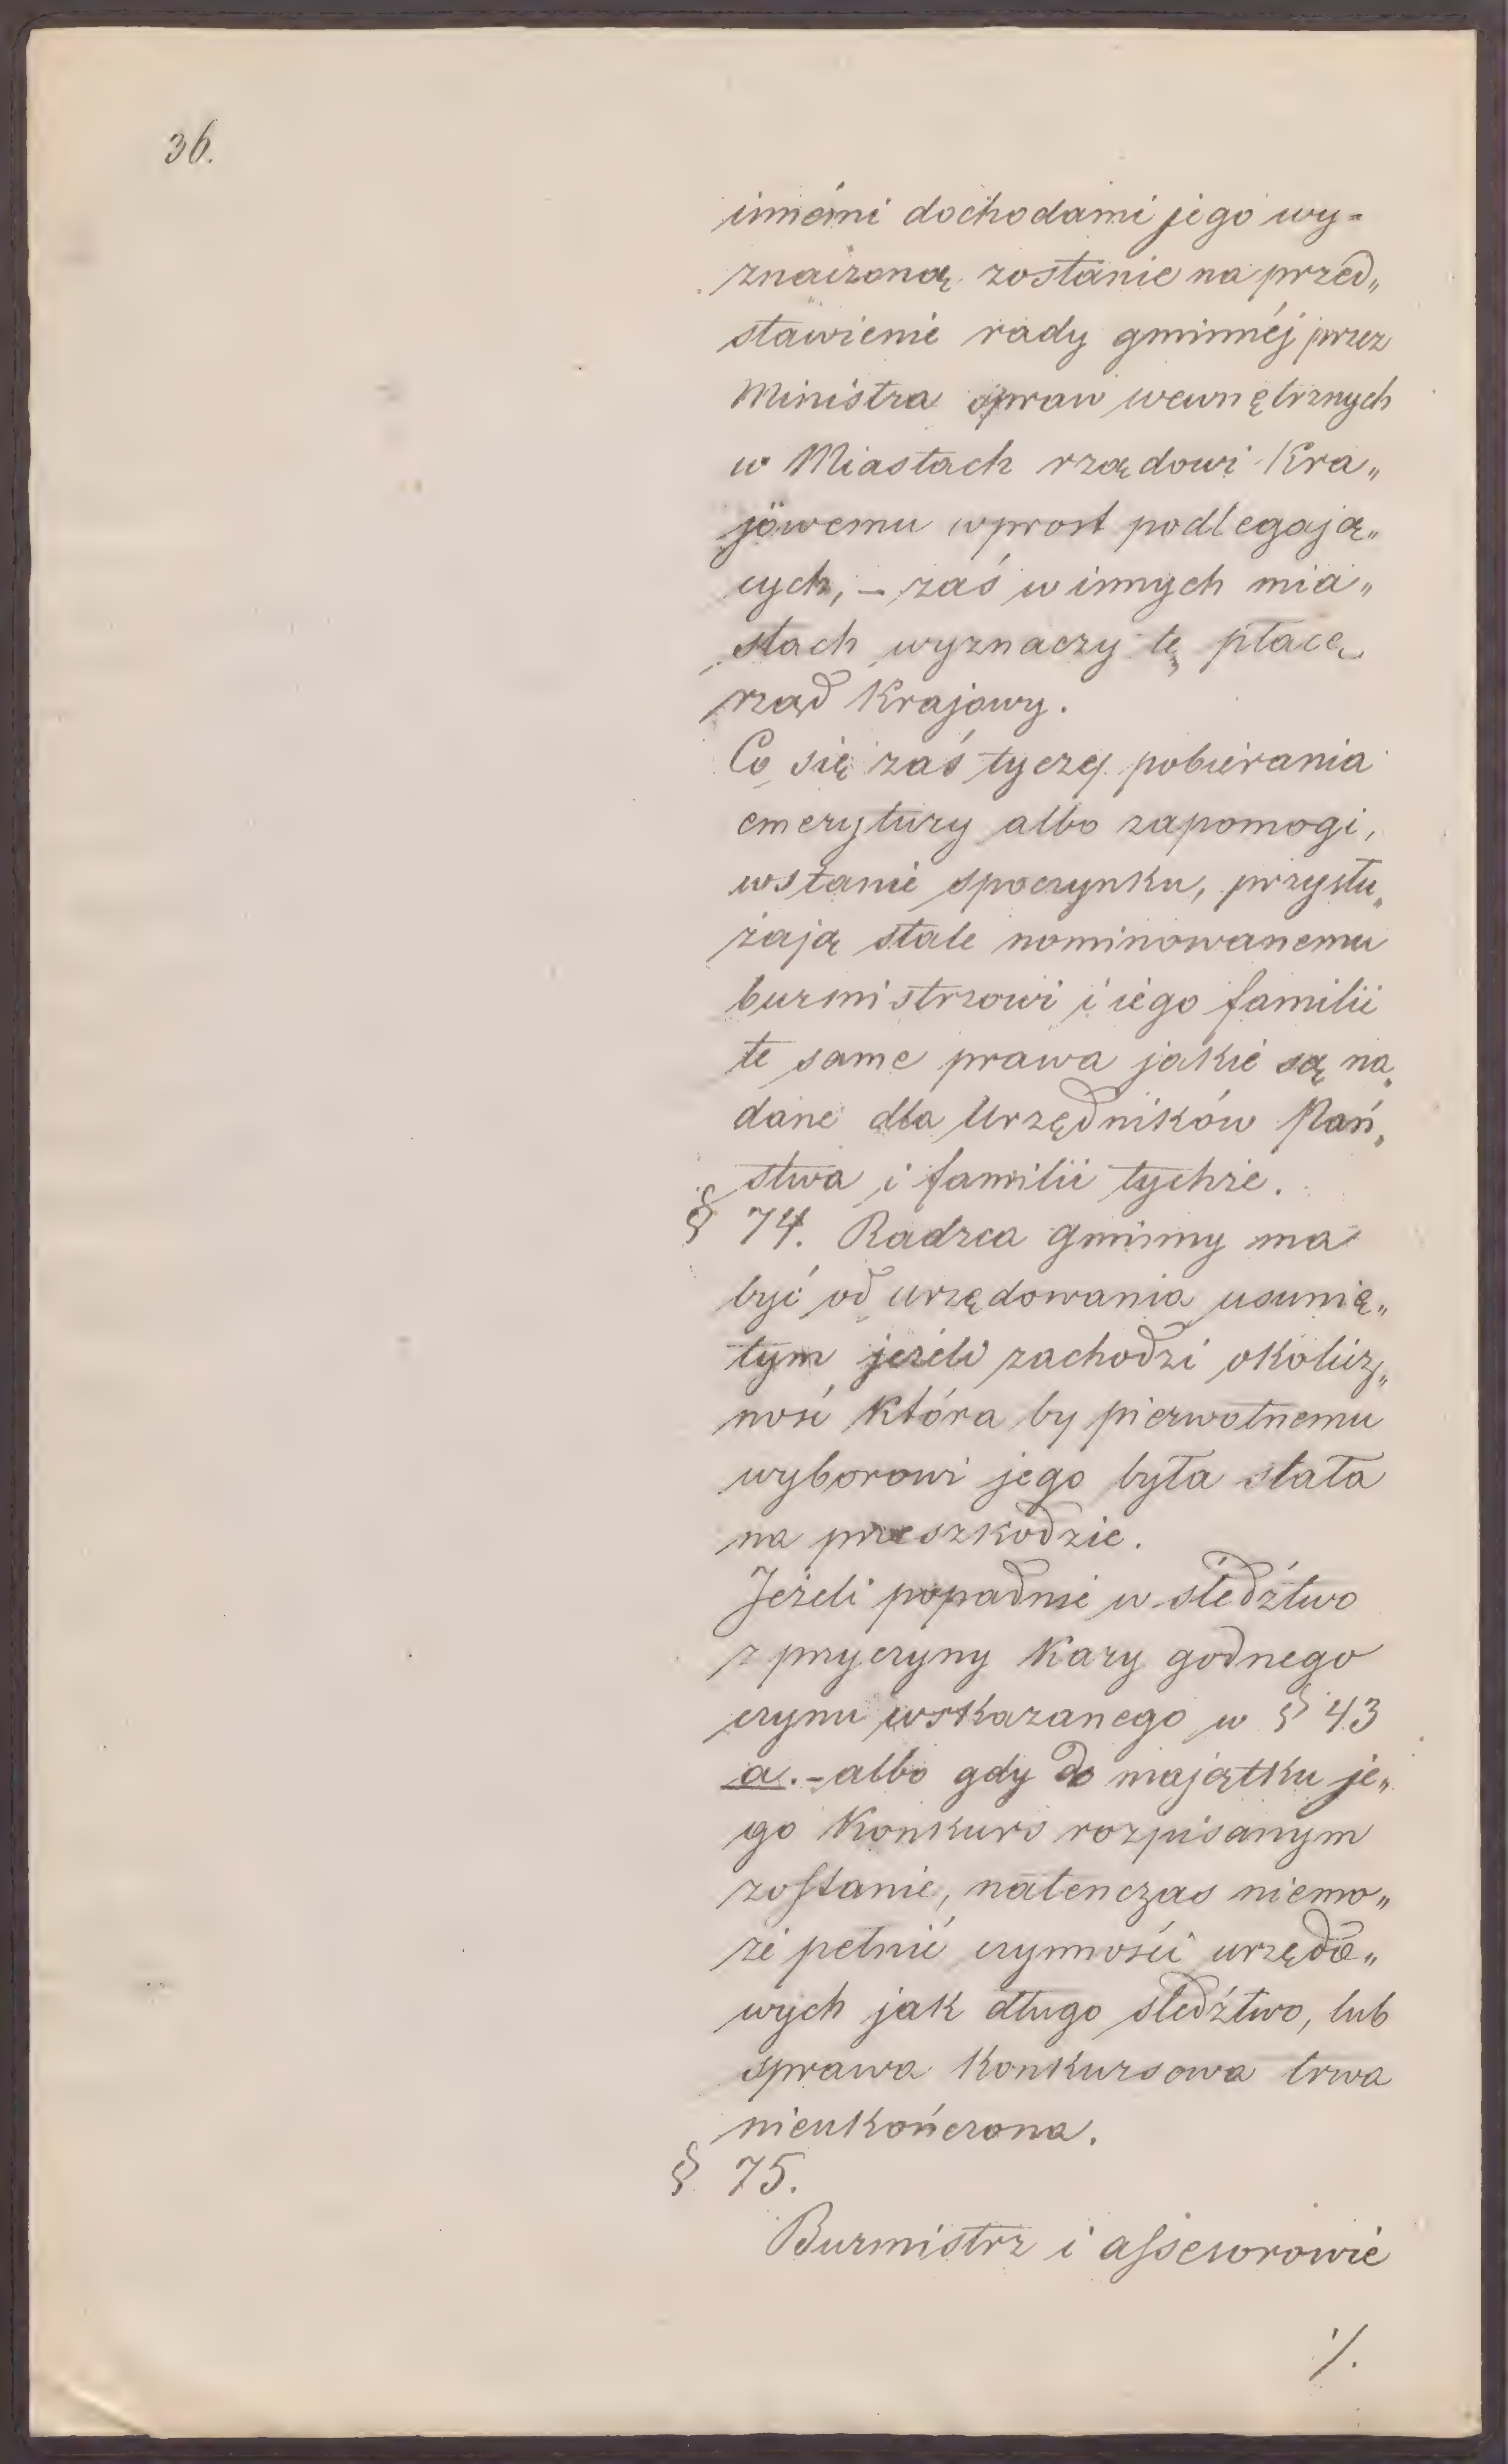 36.
innémi dochodami jego wy-
znaczoną zostanie na przed„
stawienie rady gminnéj przez
Ministra spraw wewnętrznych
w Miastach rządowi Kra„
jowemu wprost podlegają„
cych, – zaś w innych mia„
stach wyznaczy tę płacę
rząd Krajowy.
Co się zaś tyczy pobierania
emerytury albo zapomogi,
w stanie spoczynku, przysłu„
żają stale nominowanemu
burmistrzowi i iego familii
te same prawa jakie są na„
dane dla Urzędników Pań„
stwa i familii tychże.
§ 74. Radzca gminny ma
być od urzędowania usunię„
tym jeżeli zachodzi okolicz„
ność która by pierwotnemu
wyborowi jego była stała
na przeszkodzie.
Jeżeli popadnie w śledźtwo
z przyczyny Kary godnego
czynu wskazanego w § 43
a. – albo gdy do majątku je„
go Konkurs rozpisanym
zostanie, natenczas niemo„
że pełnić czynności urzędo„
wych jak długo śledźtwo, lub
sprawa Konkursowa trwa
nieukończona.
§ 75.
Burmistrz i assesorowie
·/.